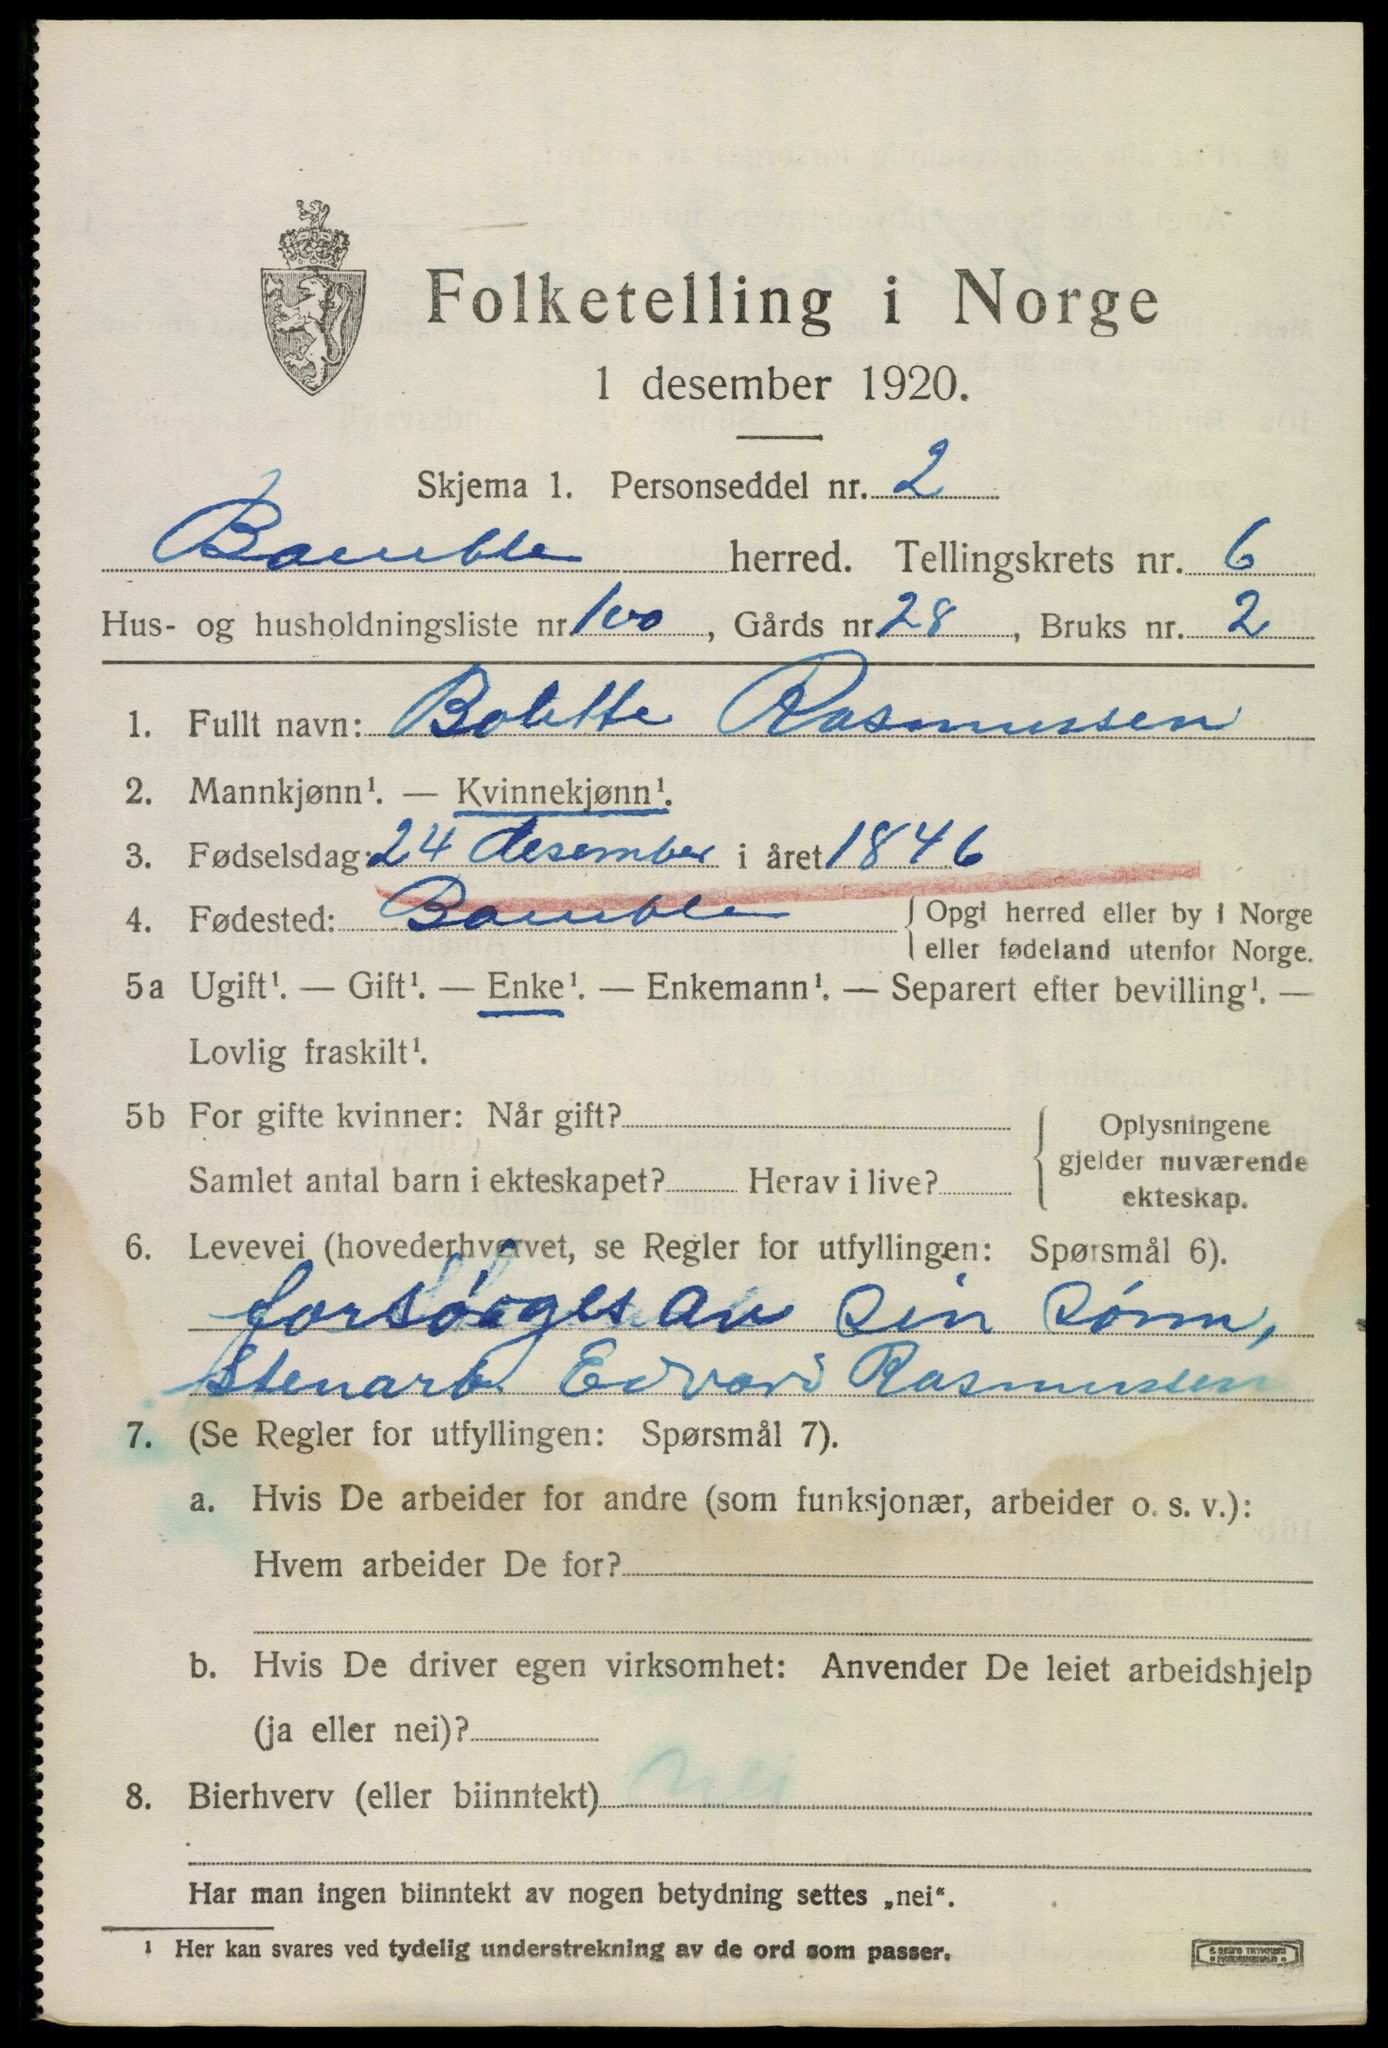 Folketelling i Norge
1 desember 1920.
Skjema 1. Personseddel nr. 2
Bamble herred. Tellingskrets nr. 6
Hus- og husholdningsliste nr. 100, Gårds nr. 28, Bruks nr. 2
1. Fullt navn: Bolette Rasmussen
2. Mannkjønn¹. — Kvinnekjønn¹.
3. Fødselsdag: 24 desember i året 1846
4. Fødested: Bamble { Opgi herred eller by i Norge
eller fødeland utenfor Norge.
5a Ugift¹. — Gift¹. — Enke¹. — Enkemann¹. — Separert efter bevilling¹. —
Lovlig fraskilt¹.
5b For gifte kvinner: Når gift? { Oplysningene
gjelder nuværende
Samlet antal barn i ekteskapet? Herav i live?
ekteskap.
6. Levevei (hovederhvervet, se Regler for utfyllingen: Spørsmål 6).
forsørges av sin sønn,
stenarb. Edvard Rasmussen
7. (Se Regler for utfyllingen: Spørsmål 7).
a. Hvis De arbeider for andre (som funksjonær, arbeider o. s. v.):
Hvem arbeider De for?
b. Hvis De driver egen virksomhet: Anvender De leiet arbeidshjelp
(ja eller nei)?
8. Bierhverv (eller biinntekt) nei
Har man ingen biinntekt av nogen betydning settes „nei“.
¹ Her kan svares ved tydelig understrekning av de ord som passer.